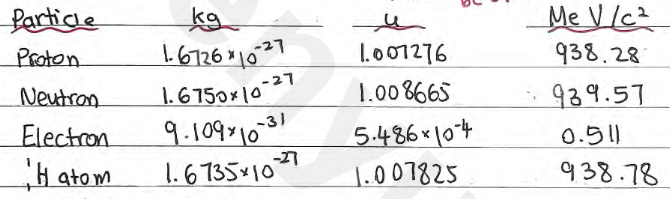 Particle kg u MeV/c²
Proton 1.6726×10⁻²⁷ 1.007276 938.28
Neutron 1.6750×10⁻²⁷ 1.008665 939.57
Electron 9.109×10⁻³¹ 5.486×10⁻⁴ 0.511
¹₁H atom 1.6735×10⁻²⁷ 1.007825 938.78